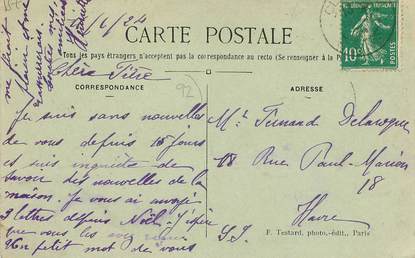 /6/24
CARTE POSTALE
Tous les pays étrangers n'acceptent pas la correspondance au recto (Se renseigner à la P
CORRESPONDANCE
ADRESSE
92
10c
POSTES
Je suis sans nouvelles
de vous depuis 15 jours
et suis inquiète de
savoir des nouvelles de la
maison. Je vous ai envoyé
3 lettres depuis Noël. J'espère
que vous les
Un petit mot de vous
me ferait
plaisir
Fernand
18 Rue Paul-Marion
18
Havre
S.I.
F. Testard, photo.-édit., Paris